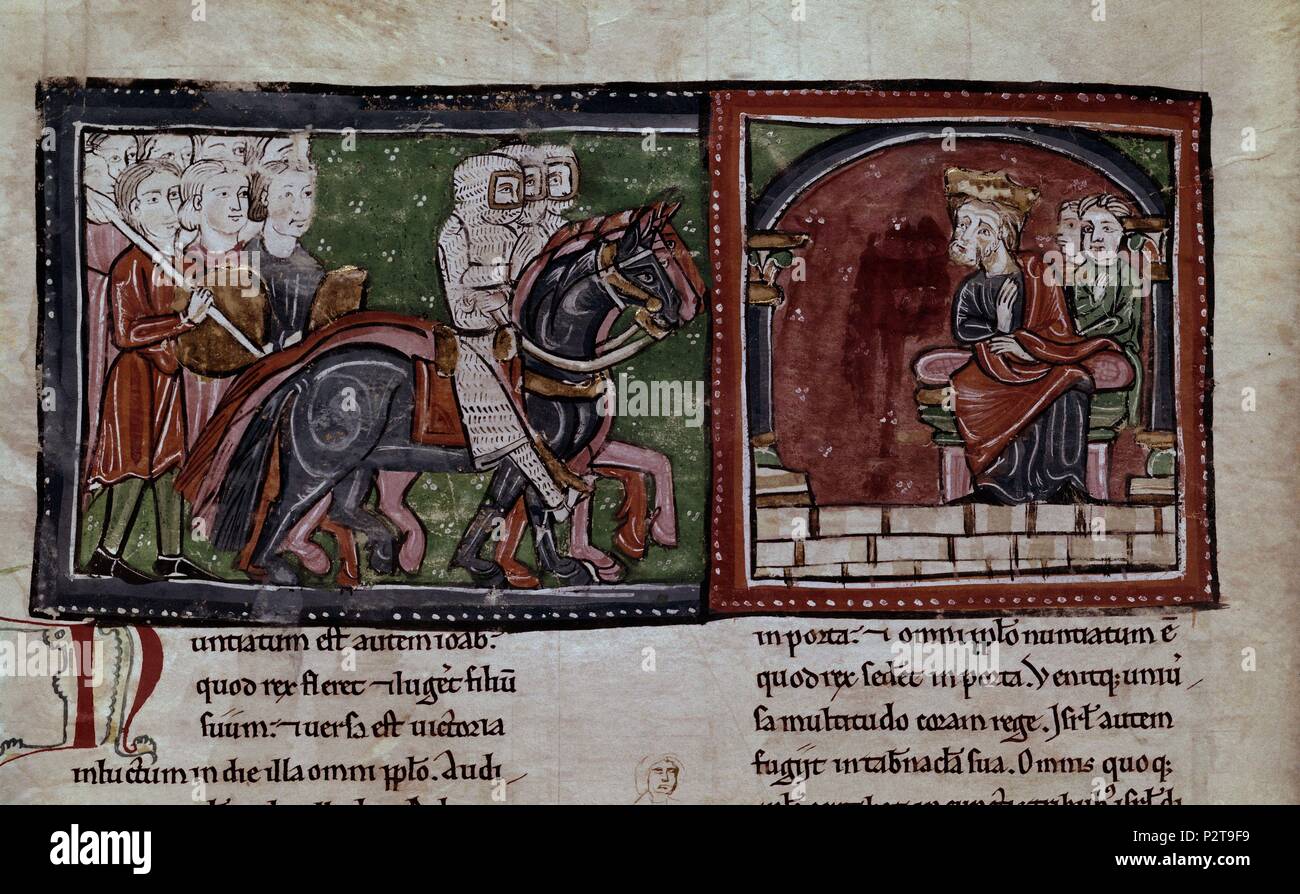 Nuntiatum est autem ioab.
quod rex fleret ⁊ lugeret filiū
suum. ⁊ uersa est uictoria
in luctum in die illa omni ppło. Audi
in porta. ⁊ omni ppło nuntiatum ē
quod rex sedet in porta. Venitq; uniuer
sa multitudo coram rege. Isrł autem
fugiit in tabnacła sua. Omnis quoq;
alamy
Image ID: P2T9F9
www.alamy.com